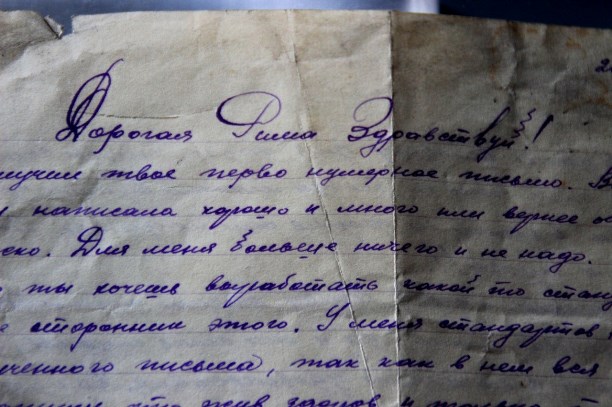 Дорогая Рима Здравствуй!
твое перво нумерное письмо.
написала хорошо и много или вернее
Для меня больше ничего и не надо.
ты хочешь выработать какой то
сторонник этого. У меня стандартов,
ченного письма, так как в нем вся
что жив здоров и только